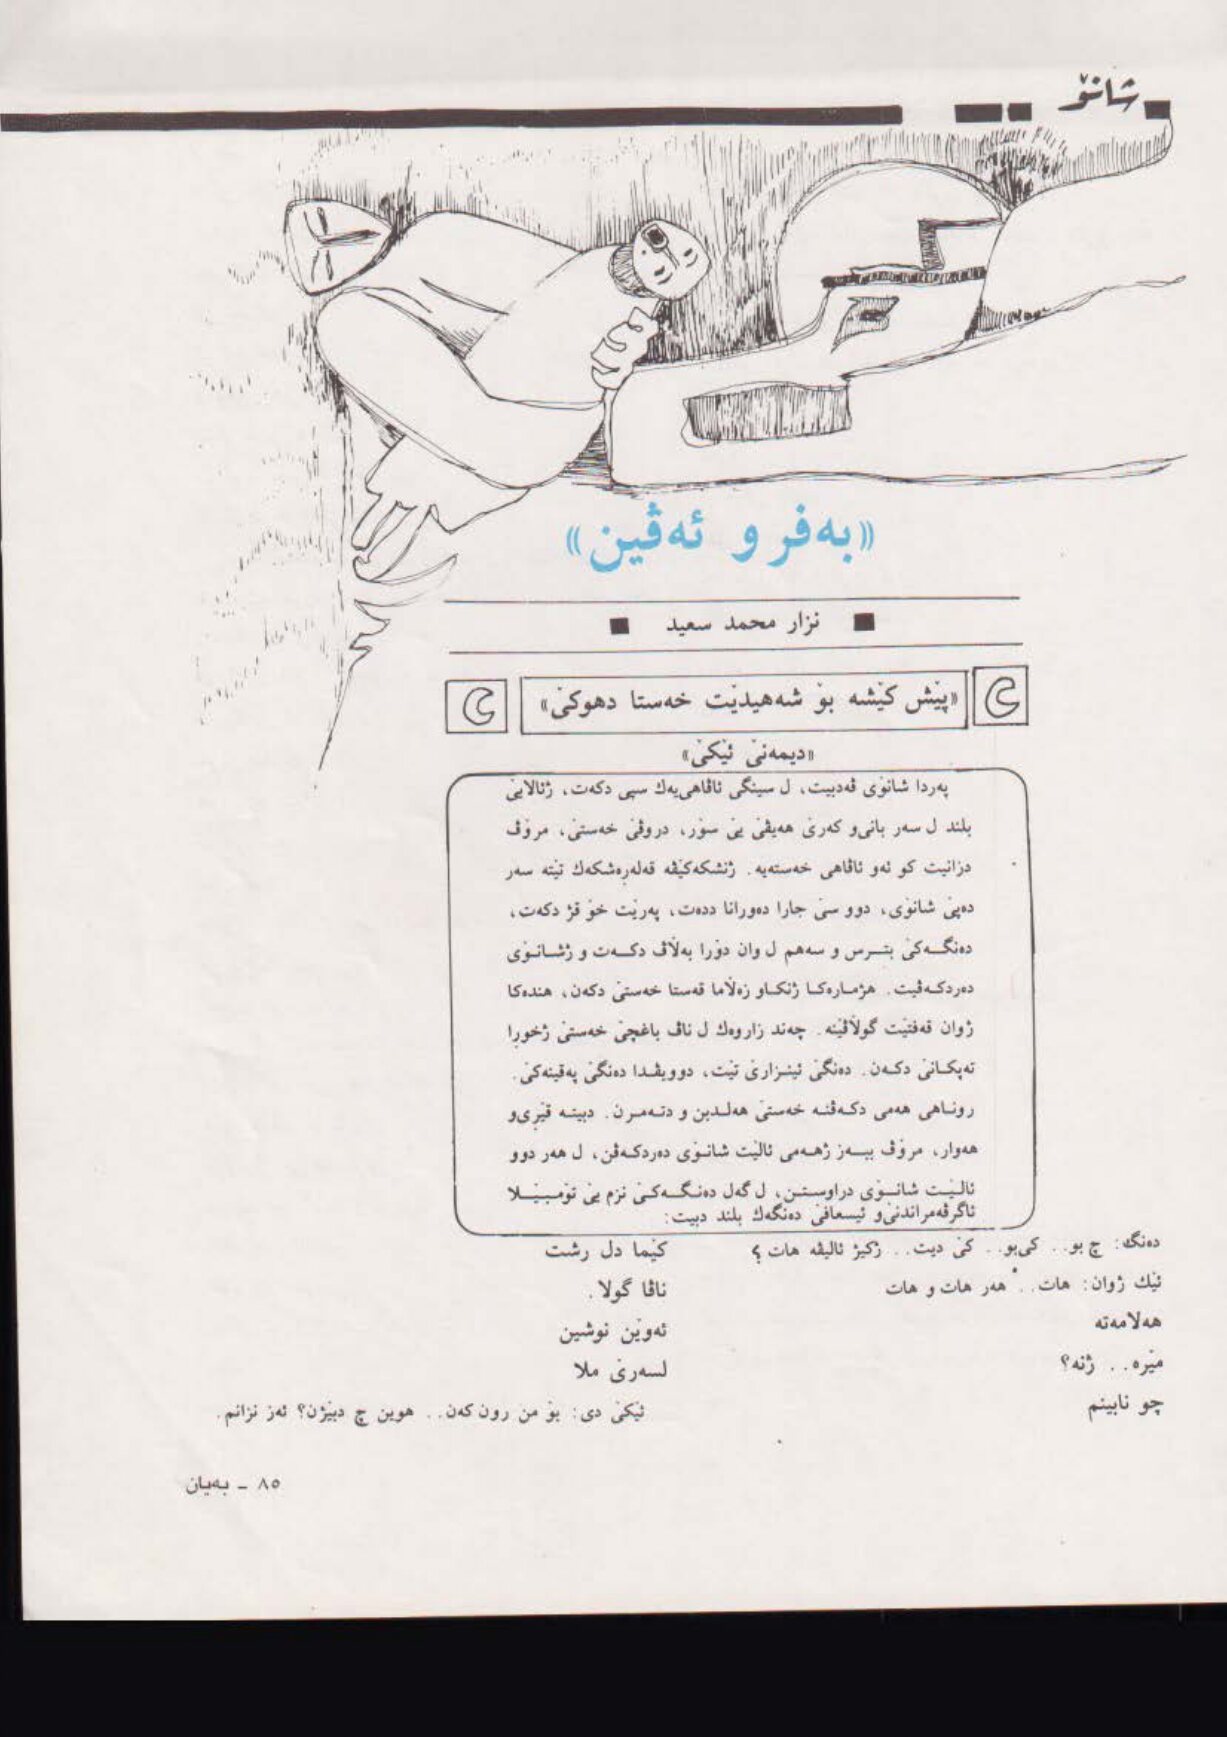 شانۆ
«بەفر و ئەڤین»
نزار محمد سعید
«پێش کێشە بۆ شەهیدێت خەستا دهوکێ»
«دیمەنێ ئێکێ»
پەردا شانۆی ڤەدبیت، ل سینگێ ئاڤاهی‌یەك سپی دکەت، ژئالایێ
بلند ل سەر بانی‌و کەرێ هەیڤێ یێ سۆر، دروڤێ خەستێ، مرۆڤ
دزانیت کو ئەو ئاڤاهی خەستەیە. ژنشکەکێڤە قەلەرەشکەك تێتە سەر
دەپێ شانۆی، دوو سێ جارا دەورانا ددەت، پەرێت خۆ قژ دکەت،
دەنگەکێ بتـرس و سەهم ل وان دۆرا بەلاڤ دکـەت و ژشانـۆی
دەردکەڤیت. هژمارەکـا ژنکـاو زەلاما قەستا خەستێ دکەن، هندەکا
ژوان قەفتێت گولاڤێنە. چەند زاروەك ل ناڤ باغچێ خەستێ ژخورا
تەپکـانێ دکـەن. دەنگێ ئینـزارێ تێت، دوویڤـدا دەنگێ پەقینەکێ.
رونـاهی هەمی دکـەڤنـە خەستێ هەلـدبن و دتـەمـرن. دبیتـە قێری‌و
هەوار، مرۆڤ بیـەز ژهـەمی ئالێت شانـۆی دەردکـەڤن، ل هەر دوو
ئالێـت شانـۆی دراوستـن، ل گەل دەنگـەکـێ نزم یێ تۆمبێـلا
ئاگرڤەمراندنێ‌و ئیسعافێ دەنگەك بلند دبیت:
دەنگ: چ بو.. کی‌بو.. کێ دیت.. ژکیژ ئالیڤە هات؟
ئێك ژوان: هات.. هەر هات و هات
هەلامەتە
مێرە.. ژنە؟
چو نابینم
کێما دل رشت
ناڤا گولا.
ئەوێن نوشین
لسەرێ ملا
ئێکێ دی: بۆ من رون کەن.. هوین چ دبێژن؟ ئەز نزانم.
٨٥ ـ بەیان